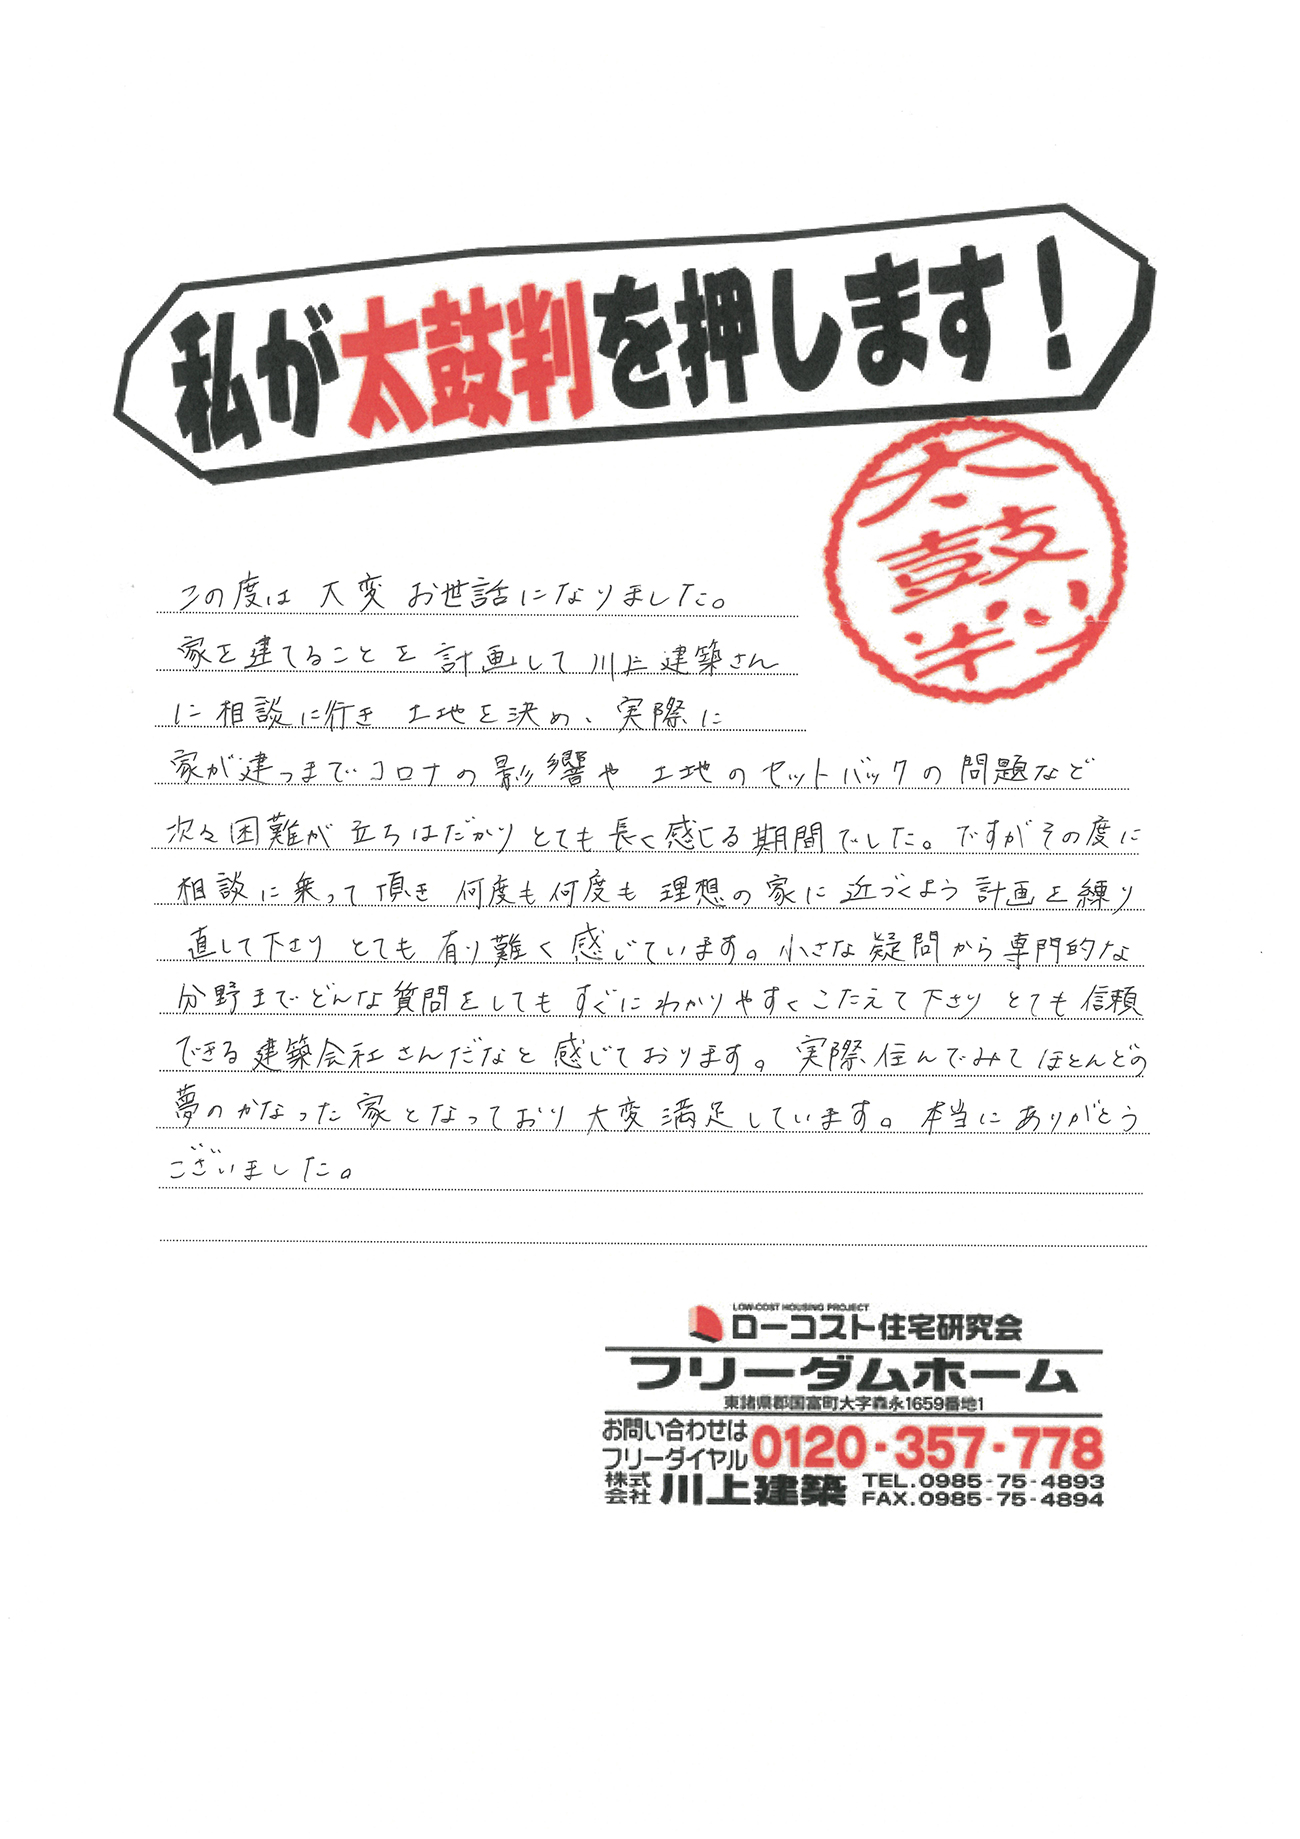 私が太鼓判を押します！
太鼓判
この度は 大変 お世話になりました。
家を建てることを計画して川上建築さん
に相談に行き 土地を決め、実際に
家が建つまでコロナの影響や 土地のセットバックの問題など
次々困難が立ちはだかりとても長く感じる期間でした。ですがその度に
相談に乗って頂き 何度も何度も 理想の家に近づくよう計画を練り
直して下さり とても 有り難く感じています。小さな疑問から専門的な
分野までどんな質問をしてもすぐにわかりやすくこたえて下さり とても信頼
できる建築会社さんだなと感じております。実際住んでみてほとんどの
夢のかなった家となっており大変満足しています。本当にありがとう
ございました。
LOW-COST HOUSING PROJECT
ローコスト住宅研究会
フリーダムホーム
東諸県郡国富町大字森永1659番地1
お問い合わせは
フリーダイヤル 0120-357-778
株式会社 川上建築 TEL.0985-75-4893
FAX.0985-75-4894